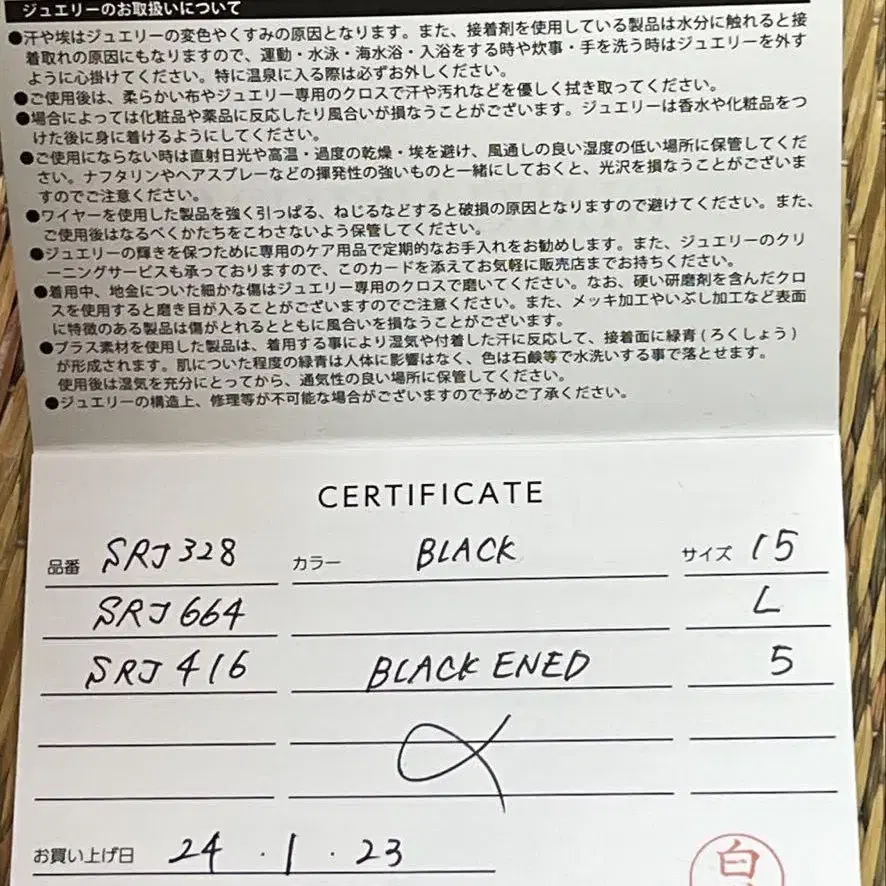 ジュエリーのお取扱いについて
●汗や埃はジュエリーの変色やくすみの原因となります。また、接着剤を使用している製品は水分に触れると接
着取れの原因にもなりますので、運動・水泳・海水浴・入浴をする時や炊事・手を洗う時はジュエリーを外す
ように心掛けてください。特に温泉に入る際は必ずお外しください。
●ご使用後は、柔らかい布やジュエリー専用のクロスで汗や汚れなどを優しく拭き取ってください。
●場合によっては化粧品や薬品に反応したり風合いが損なうことがございます。ジュエリーは香水や化粧品をつ
けた後に身に着けるようにしてください。
●ご使用にならない時は直射日光や高温・過度の乾燥・埃を避け、風通しの良い湿度の低い場所に保管してくだ
さい。ナフタリンやヘアスプレーなどの揮発性の強いものと一緒にしておくと、光沢を損なうことがございま
すのでご注意ください。
●ワイヤーを使用した製品を強く引っぱる、ねじるなどすると破損の原因となりますので避けてください。また、
ご使用後はなるべくかたちをこわさないよう保管してください。
●ジュエリーの輝きを保つために専用のケア用品で定期的なお手入れをお勧めします。また、ジュエリーのクリ
ーニングサービスも承っておりますので、このカードを添えてお気軽に販売店までお持ちください。
●着用中、地金についた細かな傷はジュエリー専用のクロスで磨いてください。なお、硬い研磨剤を含んだクロ
スを使用すると磨き目が入ることがございますのでご注意ください。また、メッキ加工やいぶし加工など表面
に特徴のある製品は傷がとれるとともに風合いを損なうことがございます。
●ブラス素材を使用した製品は、着用する事により湿気や付着した汗に反応して、接着面に緑青(ろくしょう)
が形成されます。肌についた程度の緑青は人体に影響はなく、色は石鹸等で水洗いする事で落とせます。
使用後は湿気を充分にとってから、通気性の良い場所に保管してください。
●ジュエリーの構造上、修理等が不可能な場合がございますので予めご了承ください。
CERTIFICATE
品番 SRJ328 カラー BLACK サイズ 15
SRJ664 L
SRJ416 BLACKENED 5
お買い上げ日 24.1.23
白